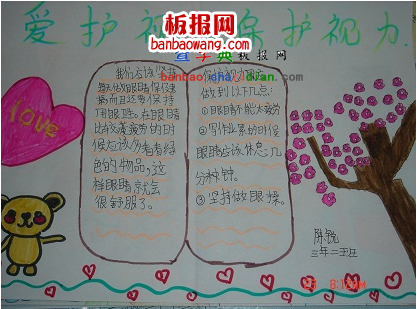 爱护视 保护视力
板报网
banbaowang.com
查字典板报网
banbao.chazidian.com
love
我们应该坚持
每天做眼睛保健
操而且还要保持
用眼卫生。在眼睛
比较疲劳的时
候应该多看看绿
色的物品,这
样眼睛就会
很舒服了。
做到以下几点:
①眼睛不能太疲劳
②写作业累的时候
眼睛应该休息几
分钟。
③坚持做眼操。
陈锐
三年二班